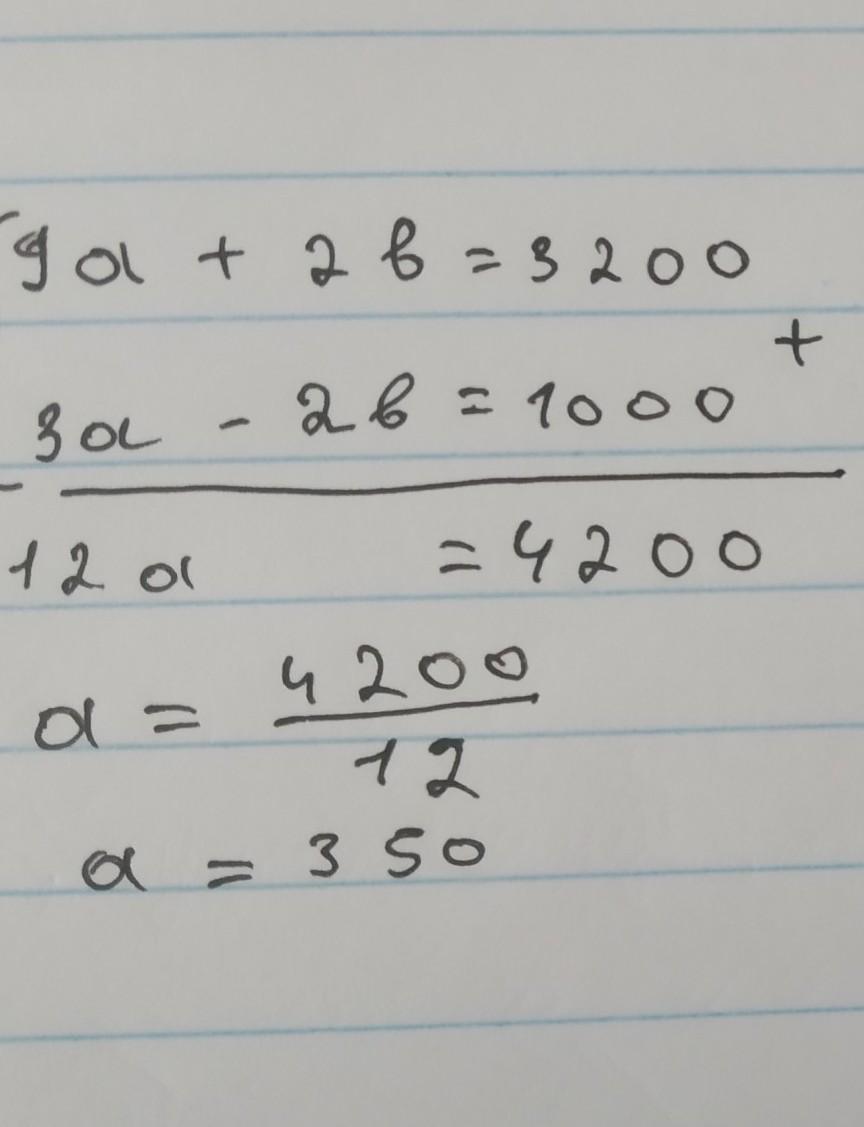 9a + 2b = 3200
+
3a - 2b = 1000
12a = 4200
a = 4200/12
a = 350